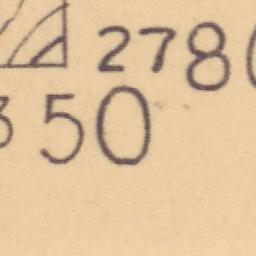 278
350